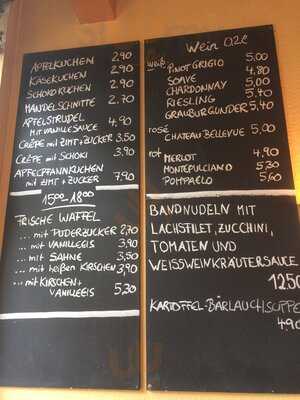 APFELKUCHEN 2,90
KÄSEKUCHEN 2,90
SCHOKOKUCHEN 2,90
MANDELSCHNITTE 2.70
APFELSTRUDEL 4,90
MIT VANILLESAUCE
CRÊPE MIT ZIMT+ZUCKER 3,50
CRÊPE MIT SCHOKI 3,90
APFELPFANNKUCHEN
MIT ZIMT + ZUCKER 7,90
15⁰⁰-18⁰⁰
FRISCHE WAFFEL
... MIT PUDERZUCKER 2,70
... MIT VANILLEEIS 3,90
... MIT SAHNE 3,50
... MIT heißen KIRSCHEN 3,90
... MIT KIRSCHEN+
VANILLEEIS 5,20
Wein 0,2l
weiß PINOT GRIGIO 5,00
SOAVE 4,80
CHARDONNAY 5,00
RIESLING 5,40
GRAUBURGUNDER 5,40
rosé
CHATEAU BELLEVUE 5,00
rot MERLOT 4,90
MONTEPULCIANO 5,30
POMPAELO 5,60
BANDNUDELN MIT
LACHSFILET, ZUCCHINI,
TOMATEN UND
WEISSWEINKRÄUTERSAUCE
1250
KARTOFFEL-BÄRLAUCHSUPPE
4.90